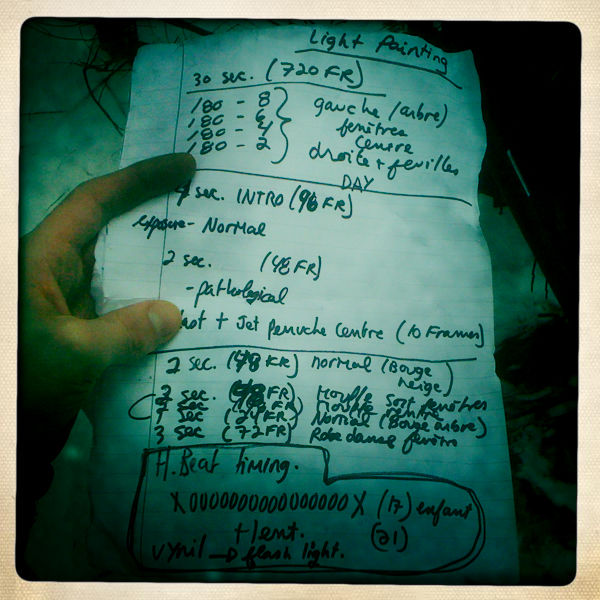 Light Painting
30 sec. (720 FR)
180 - 8
180 - 6
180 - 4
180 - 2
gauche (arbre)
fenêtres
Centre
droite + feuilles
DAY
4 sec. INTRO (96 FR)
exposure - Normal
2 sec. (48 FR)
- pathological
+ Jet Peruche Centre (10 Frames)
2 sec. (48 FR) normal (Bouge neige)
2 sec. (48 FR) Mouffe sort fenêtres
sec FR) Mouffe rentre
sec (24 FR) Normal (Bouge arbre)
3 sec (72 FR) Robe danse fenêtre
H. Beat timing.
X 0000000000000000 X (17) enfant
+ lent. (21)
Vynil → flash light.